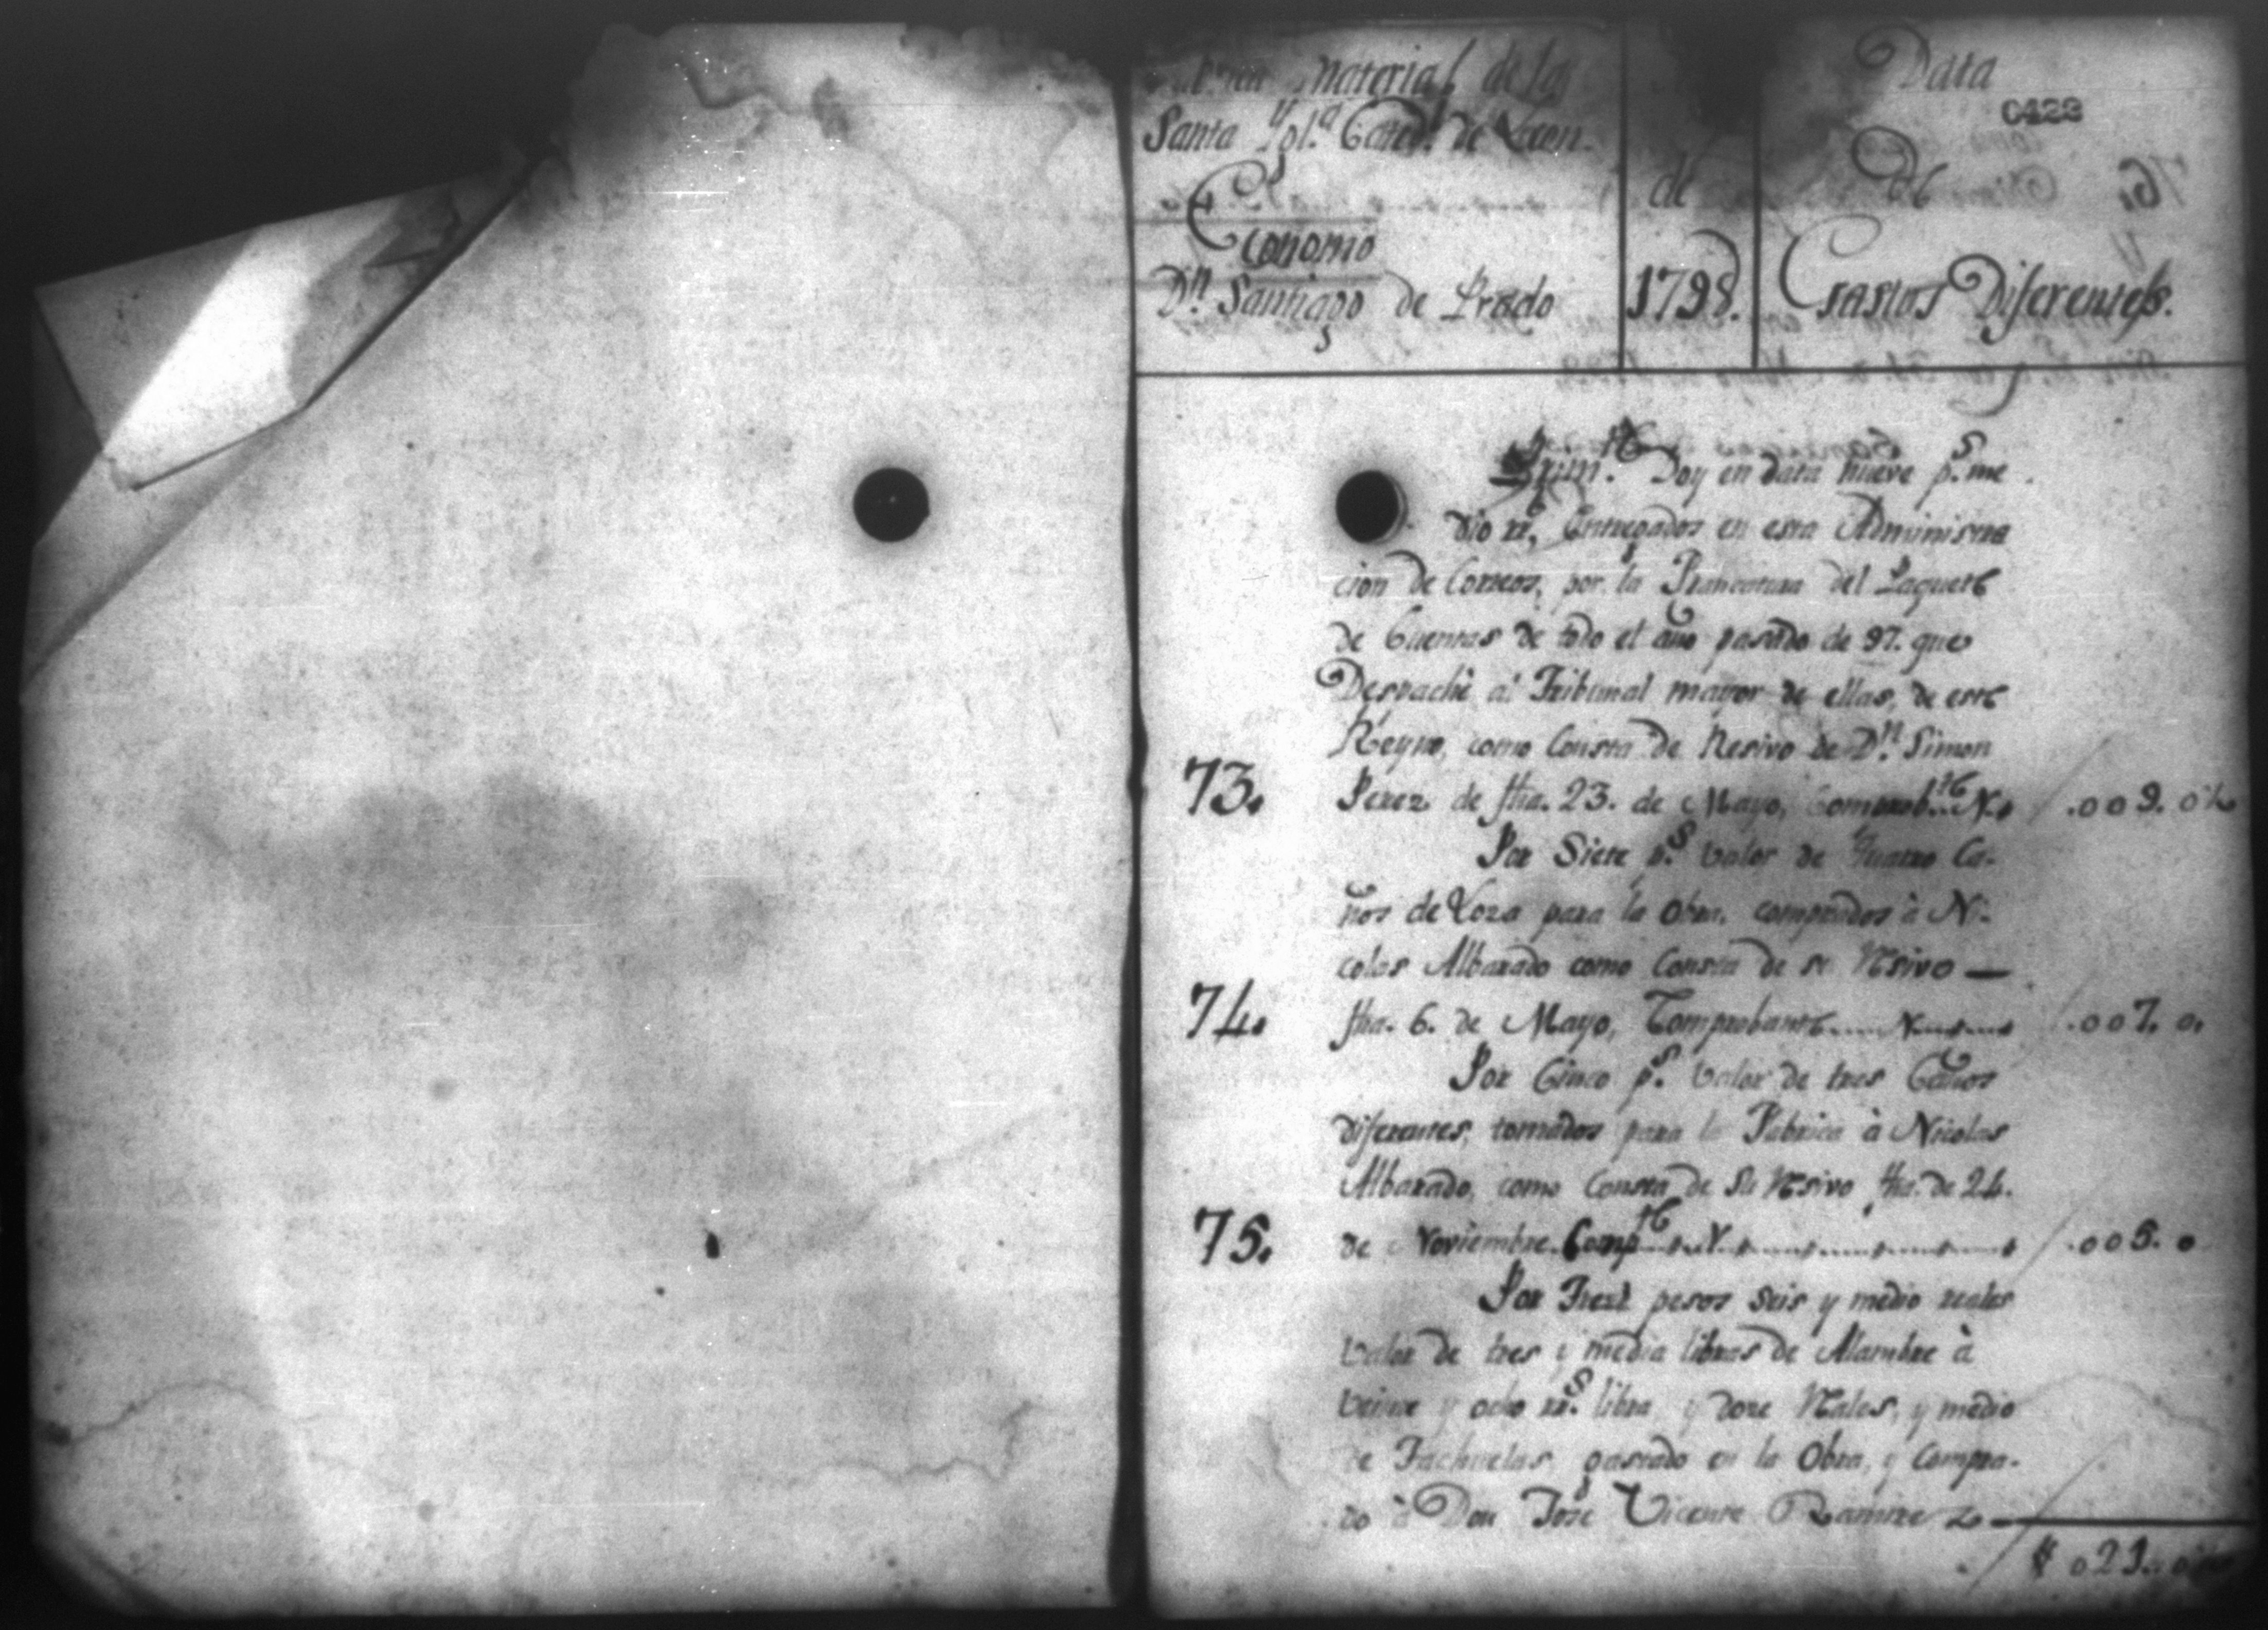 Fabrica Material de la
Santa Ygl.ª Cated.l de Leon.
Economo
D.n Santiago de Prado
de
1798.
Data
0423
De
Gastos Diferentes.
Prim.te Doy en data nueve p.s me
dio rr.s Entregados en esta Administra
cion de Correos, por la Francatura del Paquete
de Cuentas de todo el año pasado de 97. que
Despachè al Tribunal mayor de ellas, de este
Reyno, como Consta de Resivo de D.n Simon
73. Perez de fha. 23. de Mayo, Comprob.te N. .009. 0½
Por Siete p.s valor de quatro Ca-
ños de Loza para la Obra, comprados à Ni-
colas Albarado como Consta de su Resivo —
74. fha. 6. de Mayo, Comprobante..... N...... .007. 0.
Por Cinco p.s valor de tres Caños
diferentes, tomados para la Fabrica à Nicolas
Albarado, como Consta de Su Resivo fha. de 24.
75. de Noviembre. Comp.te N. .005. 0
Por Trece pesos Seis y medio reales
valor de tres y media libras de Alambre à
veinte y ocho rr.s libra y doze Reales, y medio
de Tachuelas gastado en la Obra, y Compra-
do à Don José Vicente Ramirez —
$ 021. 0½